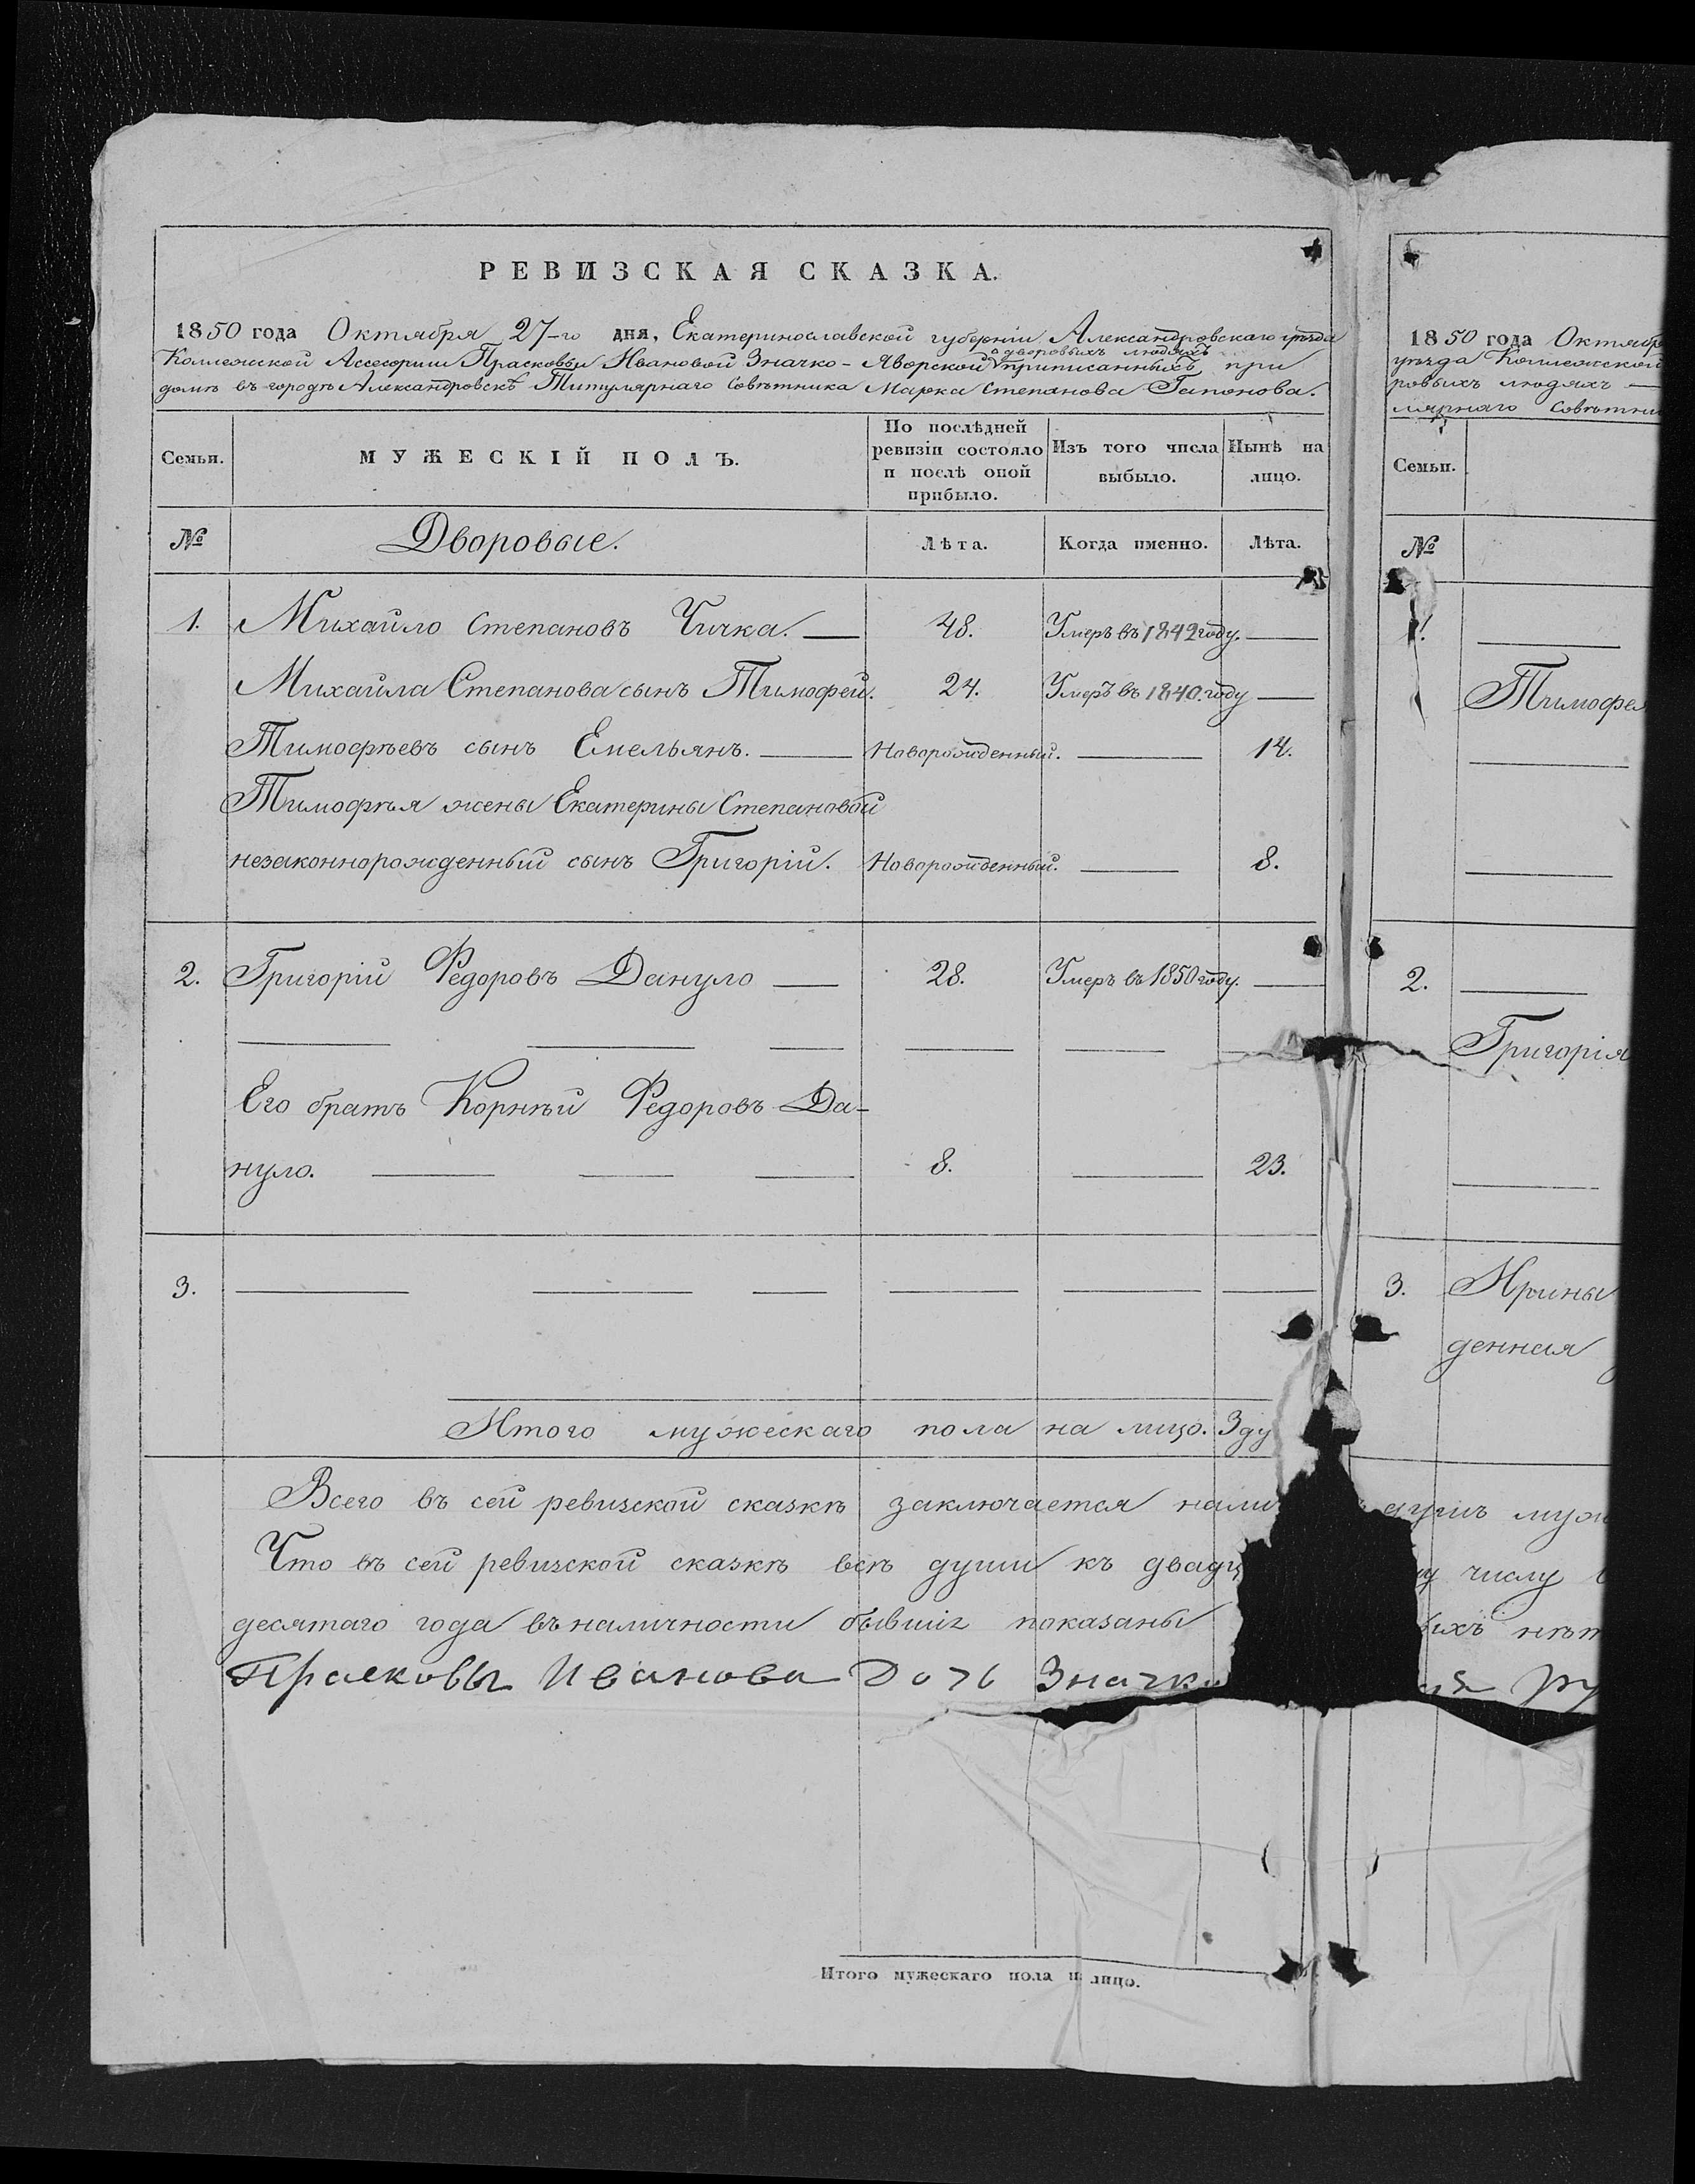 РЕВИЗСКАЯ СКАЗКА.
1850 года Октября 27-го дня, Екатеринославской губерніи Александровскаго уѣзда
Коллежской Ассесорши Прасковьи Ивановой Значко-Яворской о дворовыхъ людяхъ приписанныхъ при
домѣ въ городѣ Александровскѣ Титулярнаго Совѣтника Марка Степанова Гапонова.
Семьи.
МУЖЕСКІЙ ПОЛЪ.
По послѣдней ревизіи состояло и послѣ оной прибыло.
Изъ того числа выбыло.
Нынѣ на лицо.
№ Дворовые. Лѣта. Когда именно. Лѣта.
1. Михайло Степановъ Чичка. 48. Умеръ въ 1842 году.
Михайла Степанова сынъ Тимофей. 24. Умеръ въ 1840. году
Тимофѣевъ сынъ Емельянъ. Новорожденный. 14.
Тимофѣя жены Екатерины Степановой
незаконнорожденный сынъ Григорій. Новорожденный. 8.
2. Григорій Федоровъ Дануло 28. Умеръ въ 1850 году.
Его братъ Корнѣй Федоровъ Да-
нуло. 8. 23.
3.
Итого мужескаго пола на лицо. 3 ду
Всего въ сей ревизской сказкѣ заключается нали
Что въ сей ревизской сказкѣ всѣ души къ двадц
десятаго года въ наличности бывшіе показаны
Прасковья Иванова Дочь Значко
Итого мужескаго пола н лицо.
1850 года Октябр
уѣзда Коллежской
ровыхъ людяхъ —
лярнаго Совѣтни
Семьи.
№
1.
Тимофе
2.
Григорія
3. Ирины
денная
душъ муж
му числу
ыхъ нѣт
ая ру